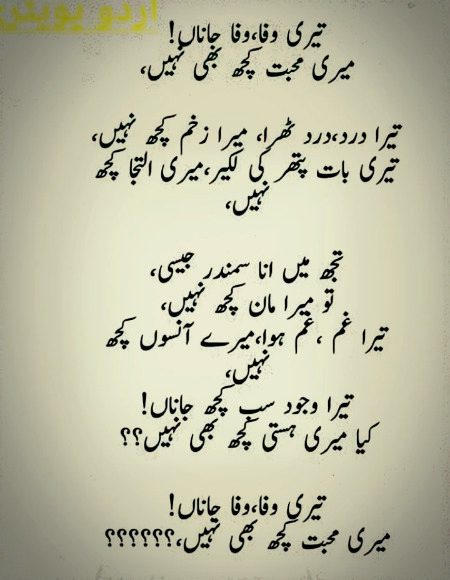 اردو پوئٹری
تیری وفا،وفا جاناں!
میری محبت کچھ بھی نہیں،
تیرا درد،درد ٹھرا، میرا زخم کچھ نہیں،
تیری بات پتھر کی لکیر،میری التجا کچھ
نہیں،
تجھ میں انا سمندر جیسی،
تو میرا مان کچھ نہیں،
تیرا غم ،غم ہوا،میرے آنسوں کچھ
نہیں،
تیرا وجود سب کچھ جاناں!
کیا میری ہستی کچھ بھی نہیں؟؟
تیری وفا،وفا جاناں!
میری محبت کچھ بھی نہیں،؟؟؟؟؟؟